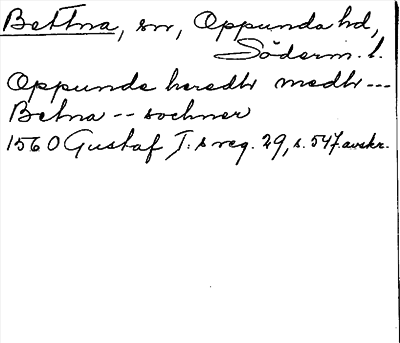 Bettna, sn, Oppunda hd,
Söderm. l.
Oppunde heredtr medtr ---
Betna -- sochner
1560 Gustaf I:s reg. 29, s. 547. avskr.